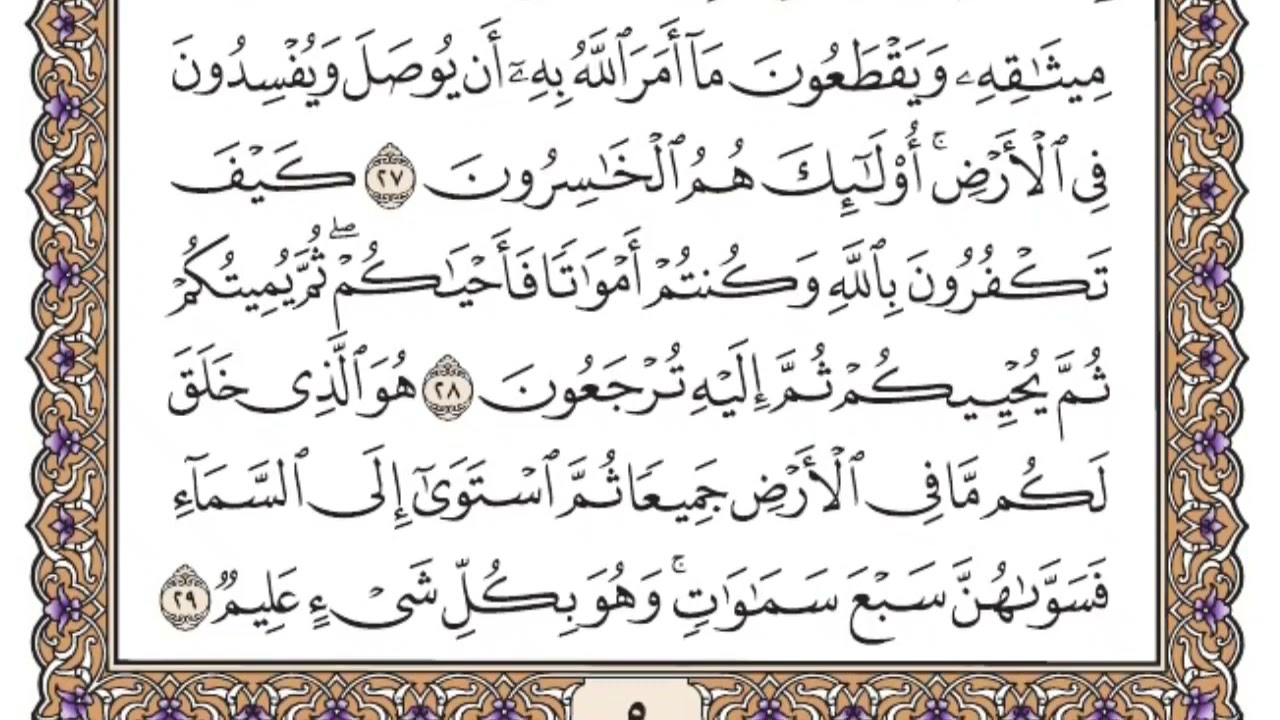 مِيثَٰقِهِۦ وَيَقْطَعُونَ مَآ أَمَرَ ٱللَّهُ بِهِۦٓ أَن يُوصَلَ وَيُفْسِدُونَ
فِى ٱلْأَرْضِ ۚ أُو۟لَٰٓئِكَ هُمُ ٱلْخَٰسِرُونَ ٢٧ كَيْفَ
تَكْفُرُونَ بِٱللَّهِ وَكُنتُمْ أَمْوَٰتًا فَأَحْيَٰكُمْ ۖ ثُمَّ يُمِيتُكُمْ
ثُمَّ يُحْيِيكُمْ ثُمَّ إِلَيْهِ تُرْجَعُونَ ٢٨ هُوَ ٱلَّذِى خَلَقَ
لَكُم مَّا فِى ٱلْأَرْضِ جَمِيعًا ثُمَّ ٱسْتَوَىٰٓ إِلَى ٱلسَّمَآءِ
فَسَوَّىٰهُنَّ سَبْعَ سَمَٰوَٰتٍ ۚ وَهُوَ بِكُلِّ شَىْءٍ عَلِيمٌ ٢٩